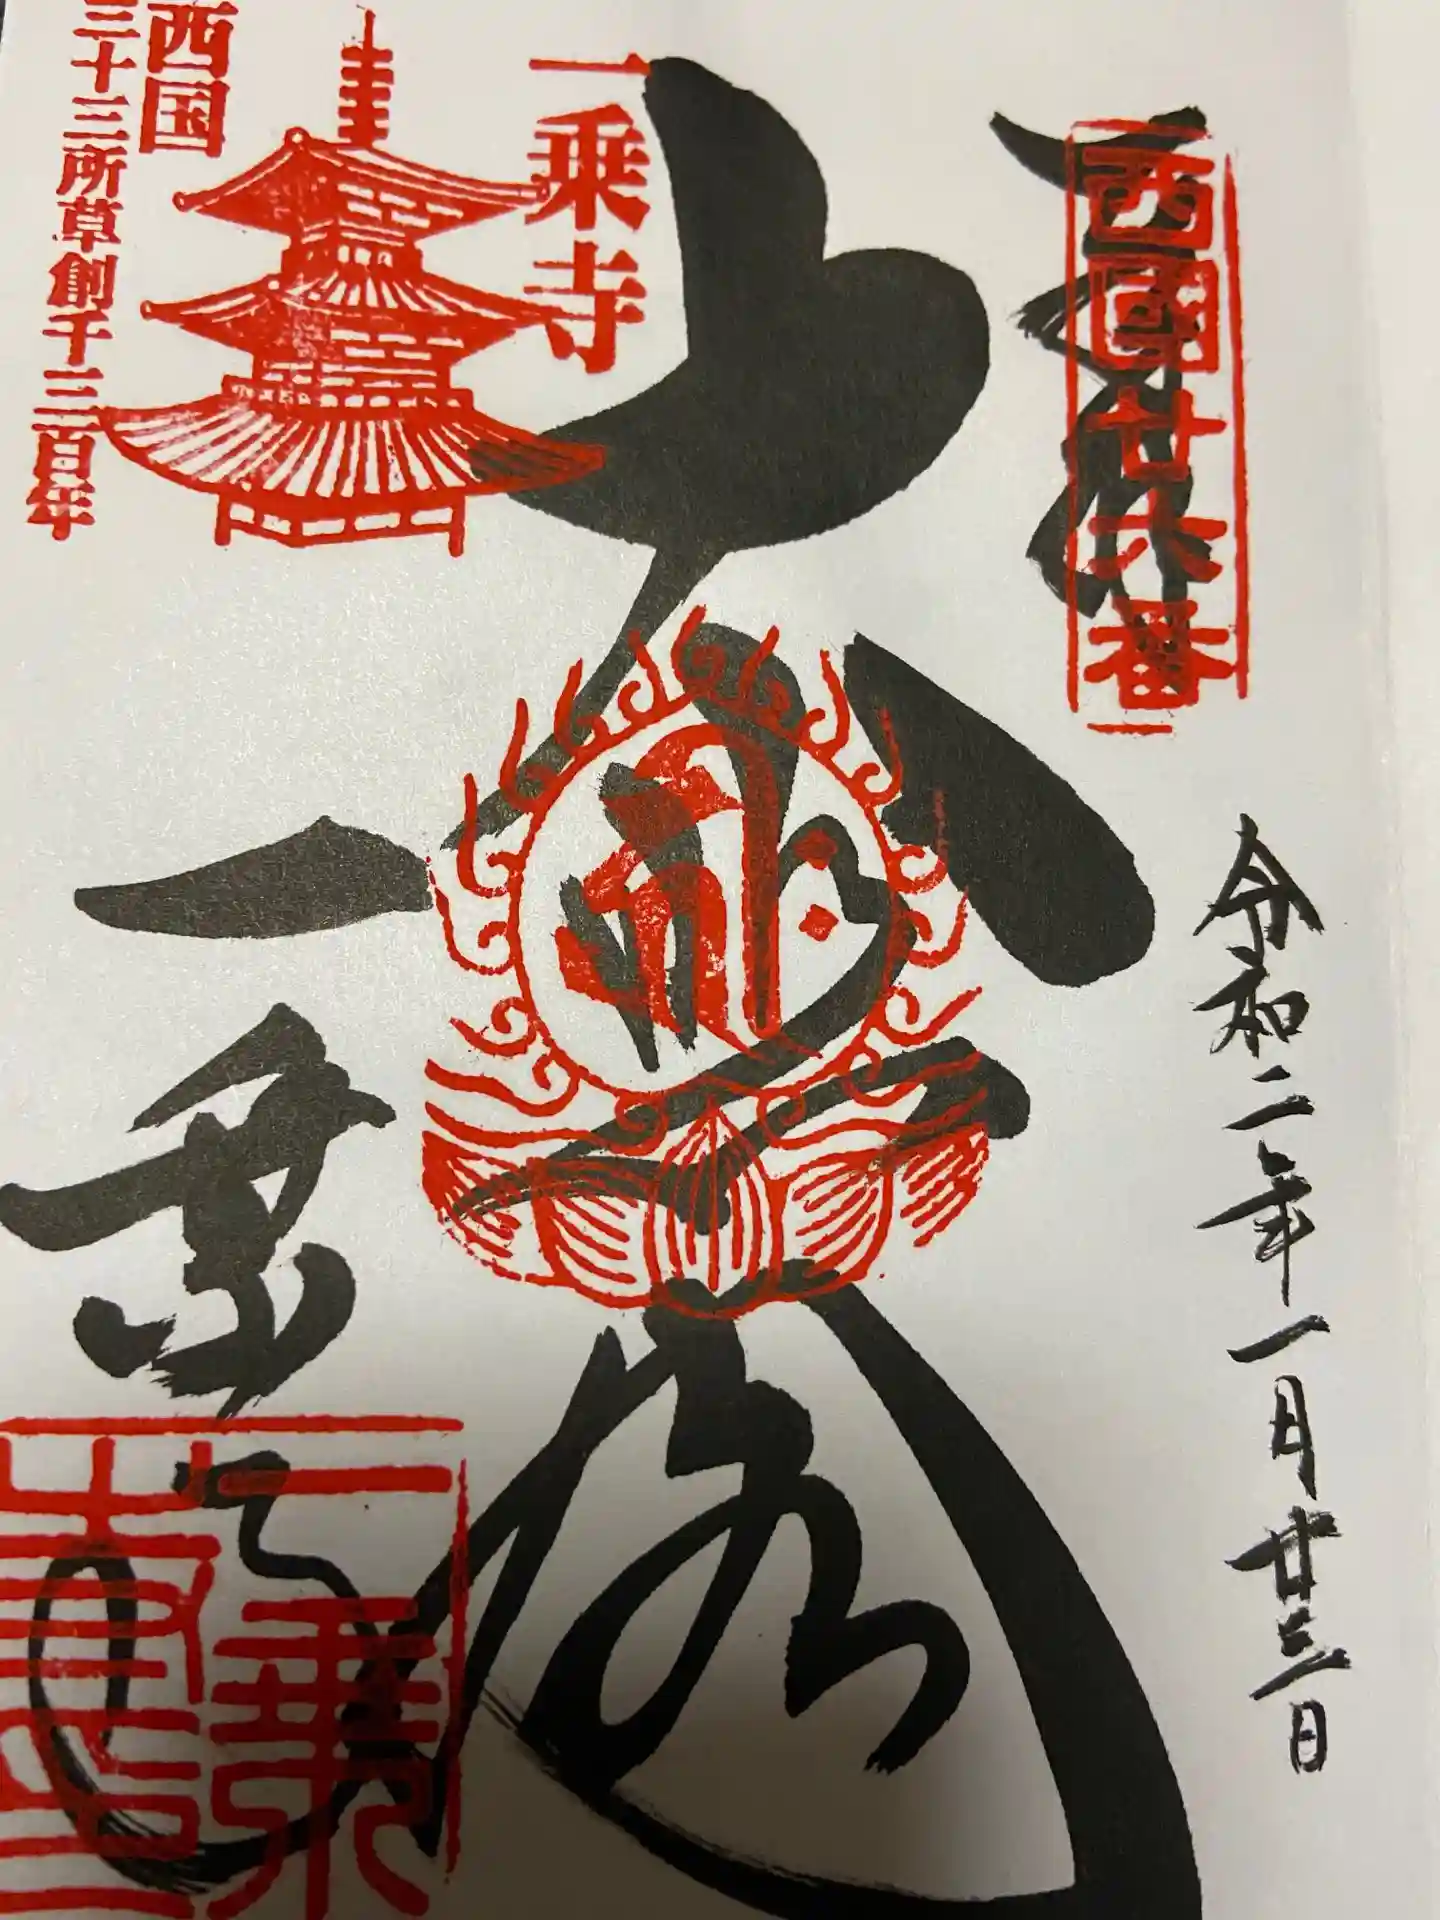 奉拝
西國廿六番
令和二年一月廿三日
大悲閣
一乗寺
一乗寺
西国
三十三所草創千三百年